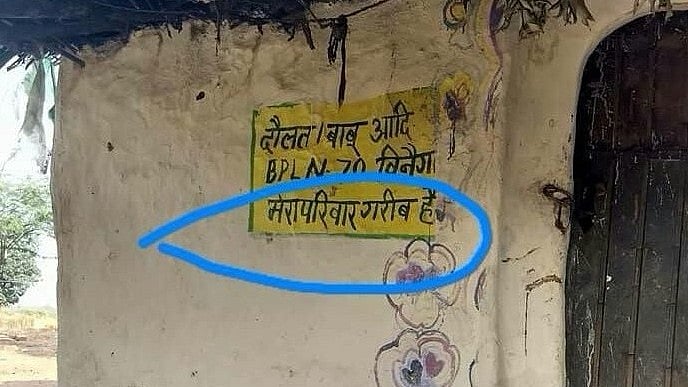 दौलत/बाबू आदि
BPL N. 70 विनेगा
मेरा परिवार गरीब है